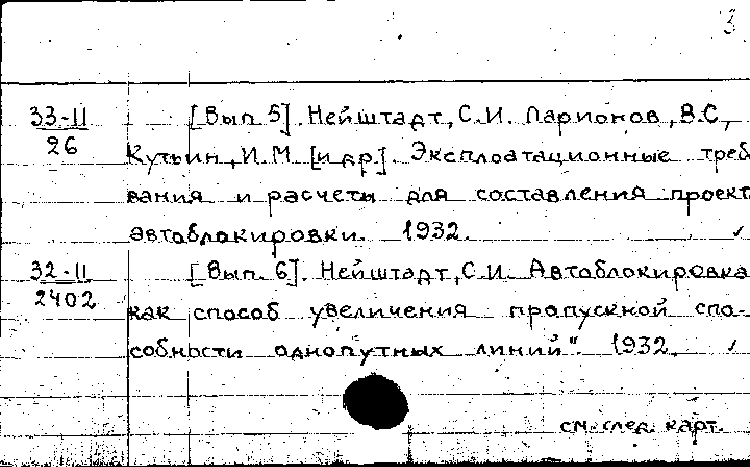 3
33-11 [Вып. 5]. Нейштадт, С.И. Ларионов, В.С.,
26 Кутьин, И.М. [и др.]. Эксплоатационные треб
вания и расчеты для составления проект
автоблокировки. 1932. ✓
32-11 [Вып. 6]. Нейштадт, С.И. Автоблокировка
2402 как способ увеличения пропускной спо-
собности однопутных линий". 1932. ✓
см. след. карт.